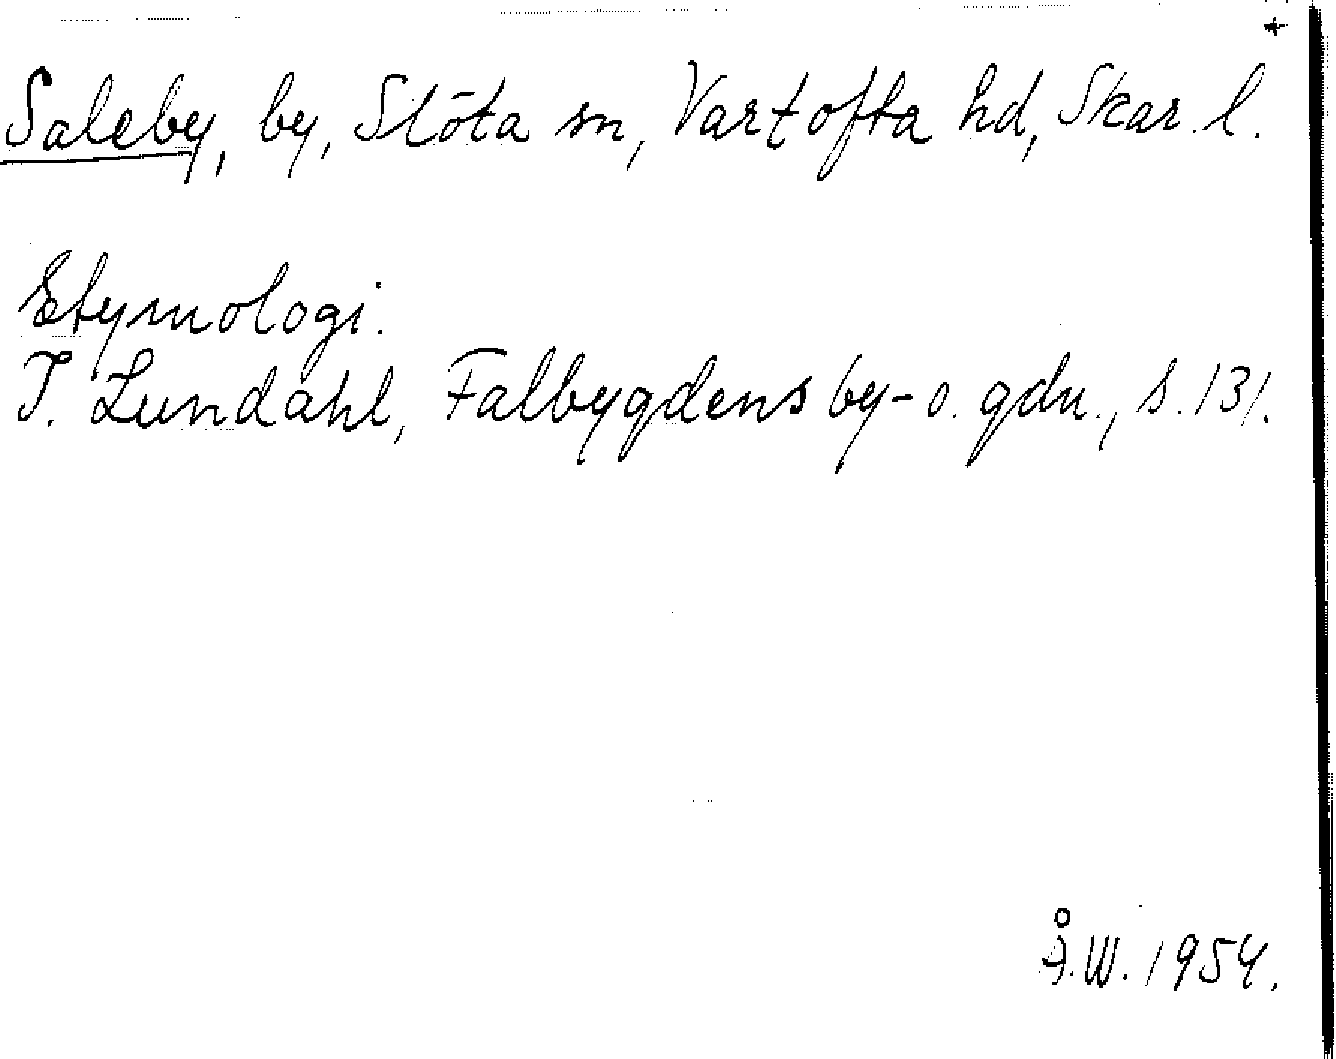 +
Saleby, by, Slöta sn, Vartofta hd, Skar. l.
Etymologi.
I. Lundahl, Falbygdens by- o. gdn., s. 131.
Å.W. 1954.